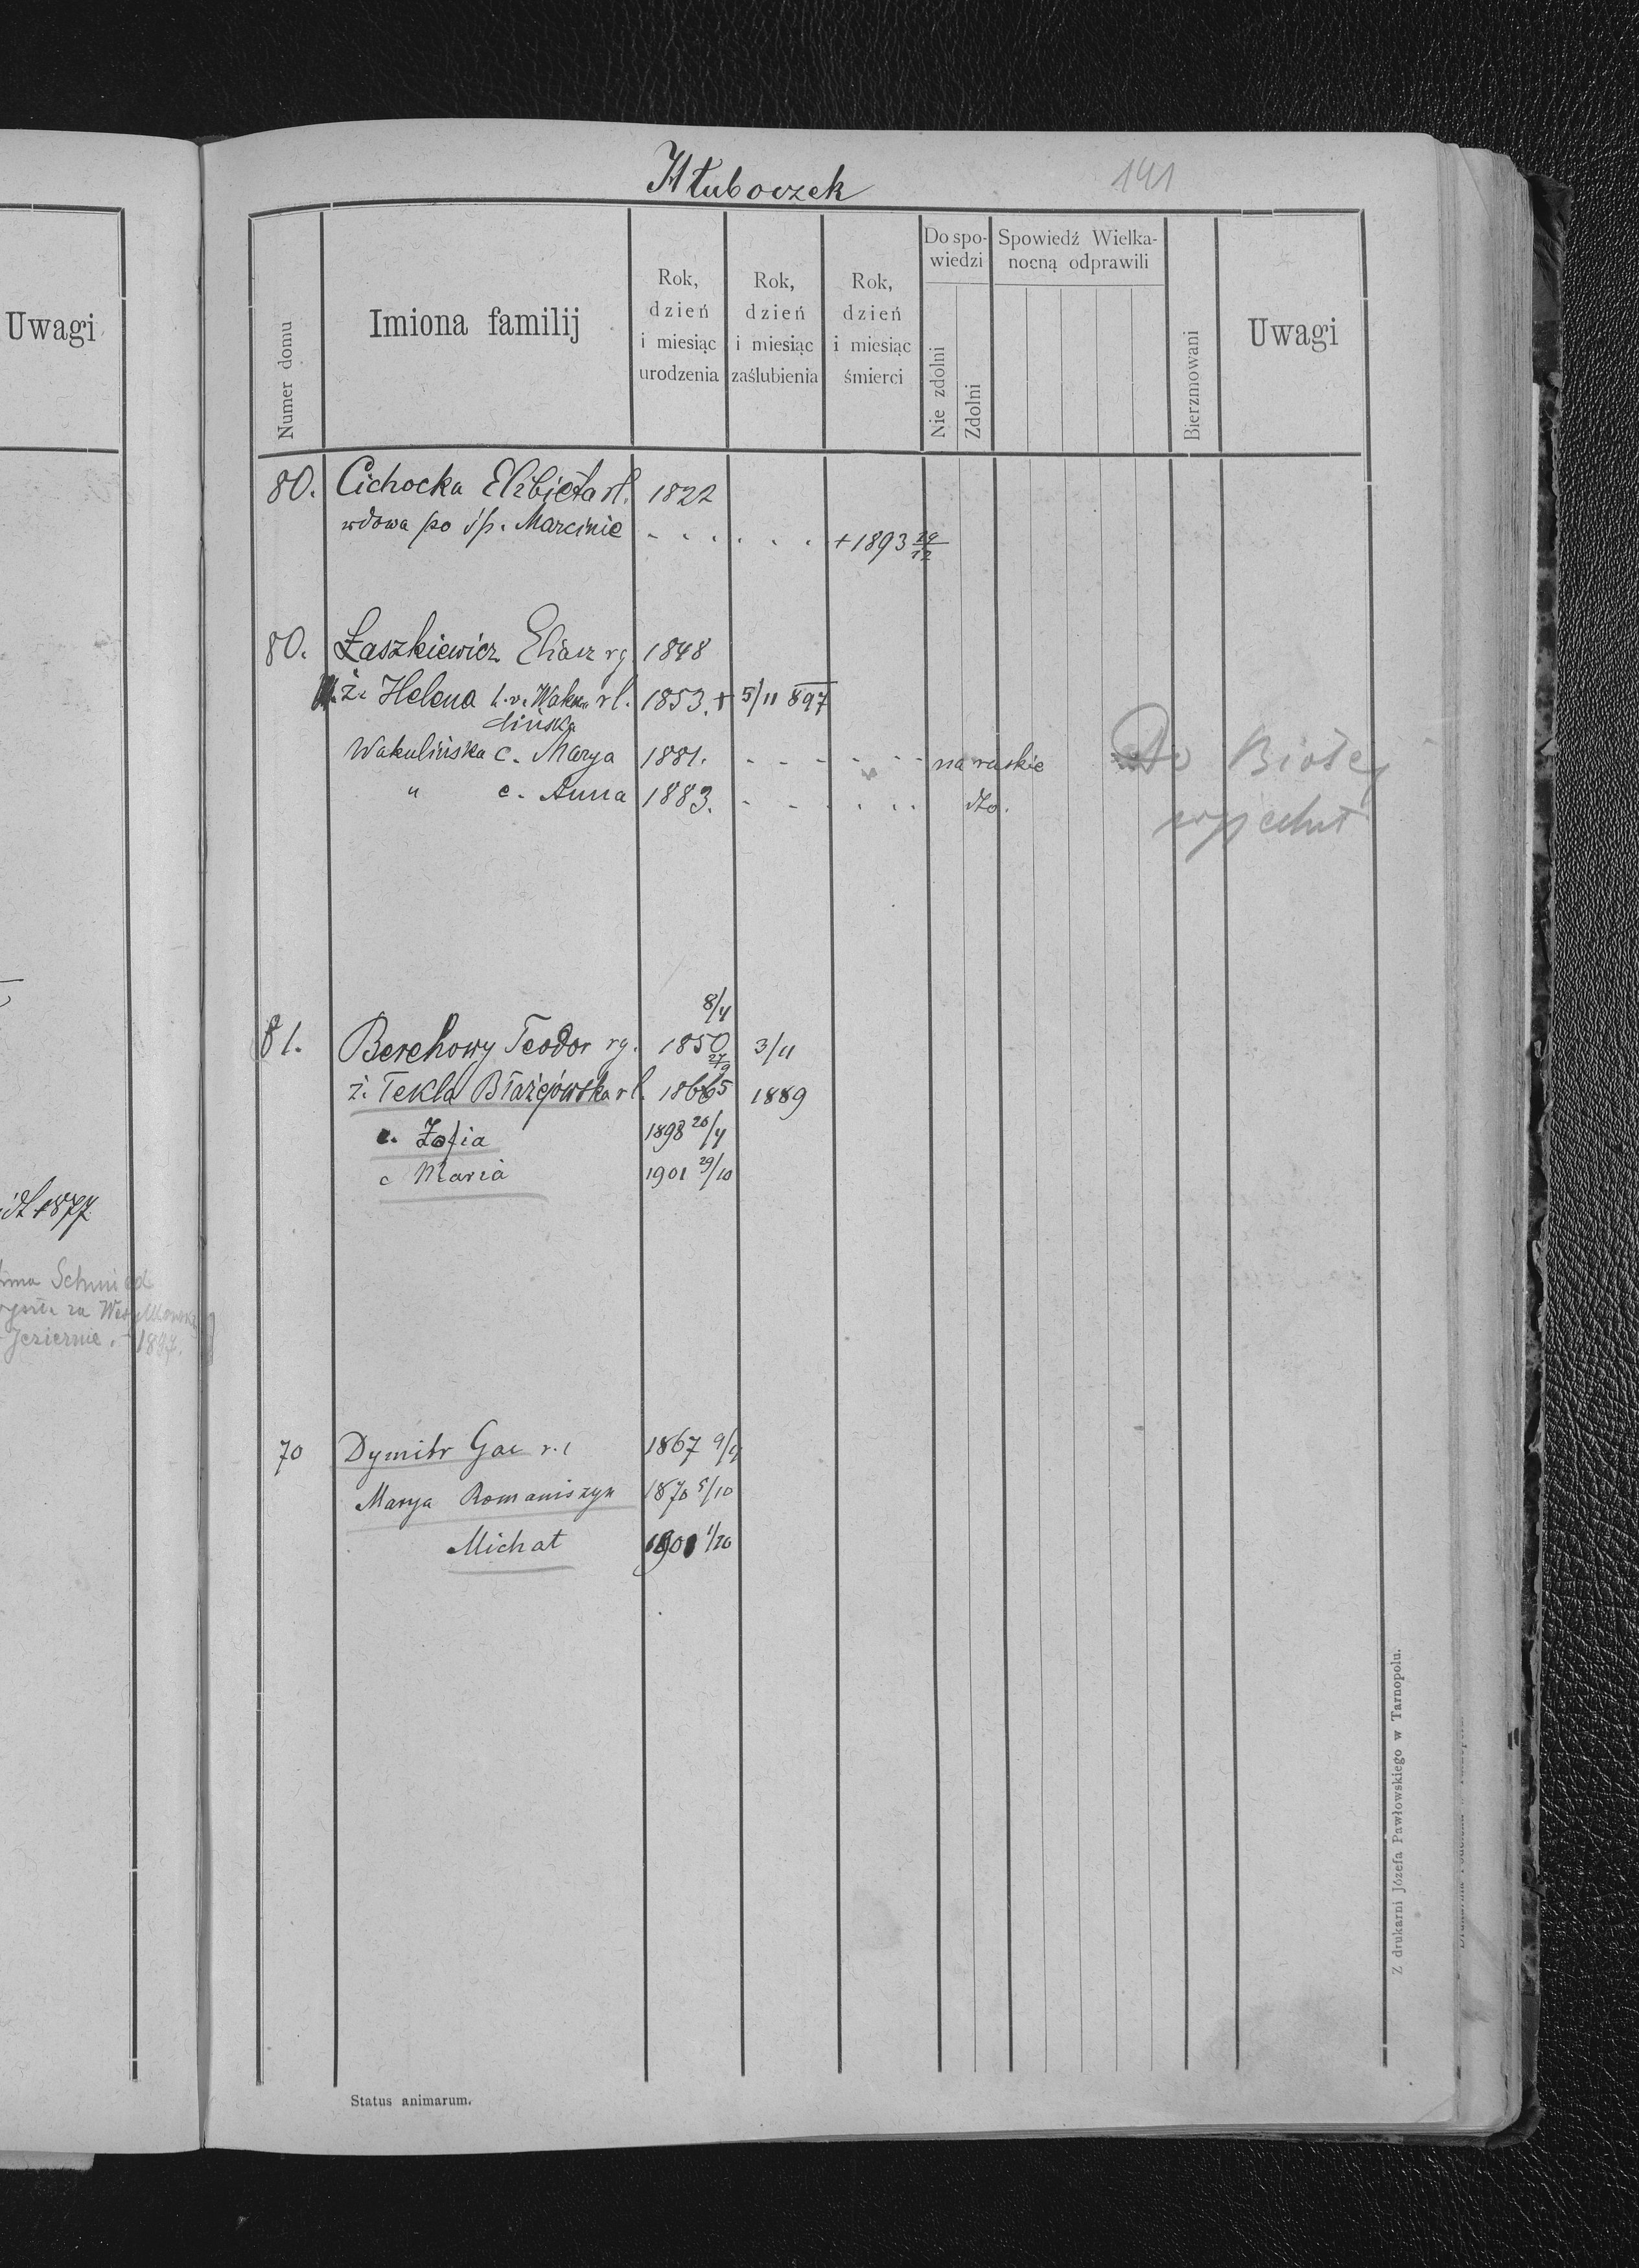 Hłuboczek
141
Uwagi
Numer domu
Imiona familij
Rok, dzień i miesiąc urodzenia
Rok, dzień i miesiąc zaślubienia
Rok, dzień i miesiąc śmierci
Do spowiedzi
Nie zdolni
Zdolni
Spowiedź Wielkanocną odprawili
Bierzmowani
Uwagi
80. Cichocka Elżbieta rl. 1822
wdowa po śp. Marcinie - . . . . . . +1893 29/12
80. Łaszkiewicz Eliasz rg 1848
ż. Helena 1.v. Waku rl. 1853. + 5/11 897
lińska
Wakulińska c. Marya 1881. - - - - - - na ruskie
" c. Anna 1883. - - . . . . dto.
Do Białej
wyjechał
8/4
81. Berehowy Teodor rg. 1850 3/11
27/9
ż. Tekla Błażejowska rl. 1865 1889
c. Zofia 1898 20/4
c Maria 1901 29/10
dł 1877
Schmied
za
Jeziernie. - 1897.
70 Dymitr Gac r.l 1867 9/4
Marya Romaniszyn 1870 5/10
Michał 1901 1/20
Status animarum.
Z drukarni Józefa Pawłowskiego w Tarnopolu.